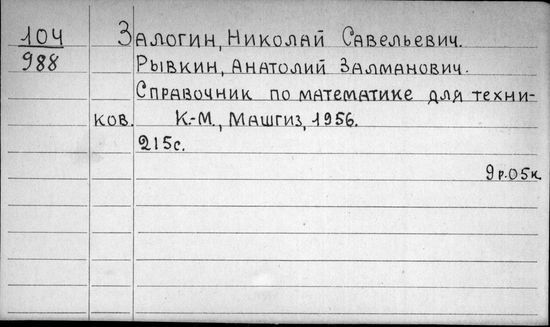 104 Залогин, Николай Савельевич.
988 Рывкин, Анатолий Залманович.
Справочник по математике для техни-
ков. К.-М., Машгиз, 1956.
215с.
9р.05к